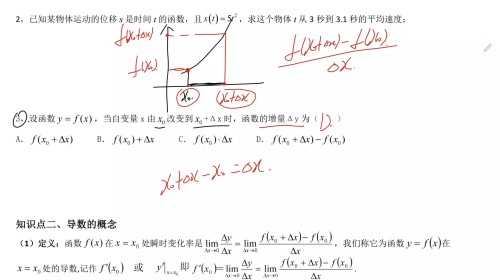 2，已知某物体运动的位移 s 是时间 t 的函数，且 s(t)=5t²，求这个物体 t 从 3 秒到 3.1 秒的平均速度；
f(x₀+Δx)
f(x₀)
x₀ x₀+Δx
f(x₀+Δx)-f(x₀)
Δx
3、设函数 y=f(x)，当自变量 x 由 x₀ 改变到 x₀+Δx 时，函数的增量 Δy 为（ D ）
A. f(x₀+Δx) B. f(x₀)+Δx C. f(x₀)·Δx D. f(x₀+Δx)-f(x₀)
x₀+Δx-x₀=Δx.
知识点二、导数的概念
（1）定义：函数 f(x) 在 x=x₀ 处瞬时变化率是 lim Δx→0 Δy/Δx = lim Δx→0 f(x₀+Δx)-f(x₀)/Δx，我们称它为函数 y=f(x) 在
x=x₀ 处的导数,记作 f'(x₀) 或 y'|x=x₀ 即 f'(x₀)=lim Δx→0 Δy/Δx = lim Δx→0 f(x₀+Δx)-f(x₀)/Δx .